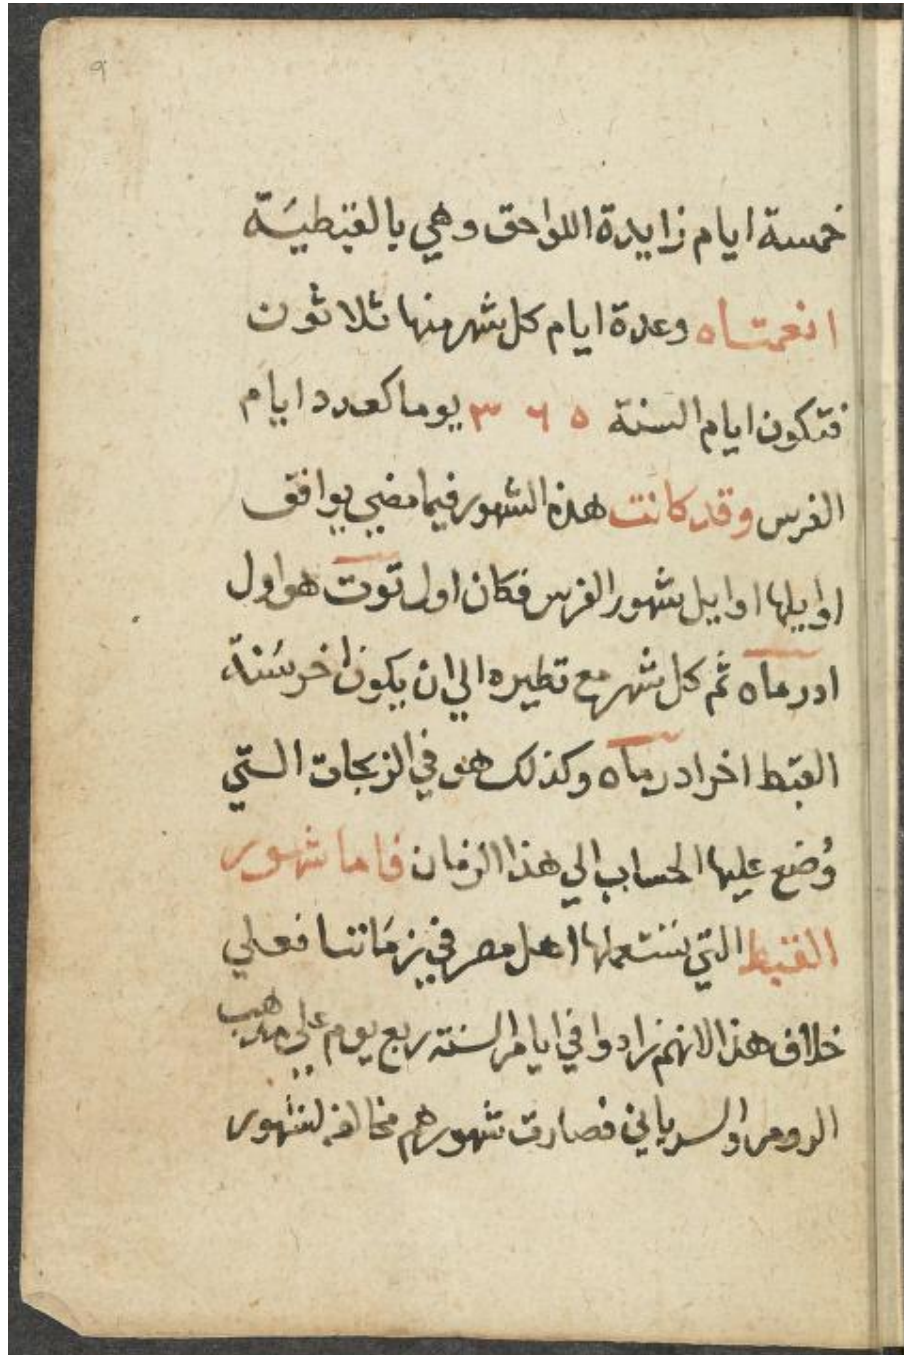 ٩
خمسة ايام زايدة اللواحق وهي بالقبطيَة
انعمتاه وعدة ايام كل شهر منها ثلاثون
فتكون ايام السنة ٣٦٥ يوما كعدد ايام
الفرس وقد كانت هذه الشهور فيما مضي يوافق
اوايلها اوايل شهور الفرس فكان اول توت هو اول
ادرماه ثم كل شهر مع نظيره الي ان يكون اخر سَنة
القبط اخر ادرماه وكذلك هو في الزيجات التي
وُضع عليها الحساب الي هذا الزمان فاما شهور
القبط التي يستعملها اهل مصر في زمَاننا فعلي
خلاف هذا لانهم زادوا في ايام السنة ربع يوم علي مذهب
الروم والسرياني فصارت شهورهم مخالفة لشهور